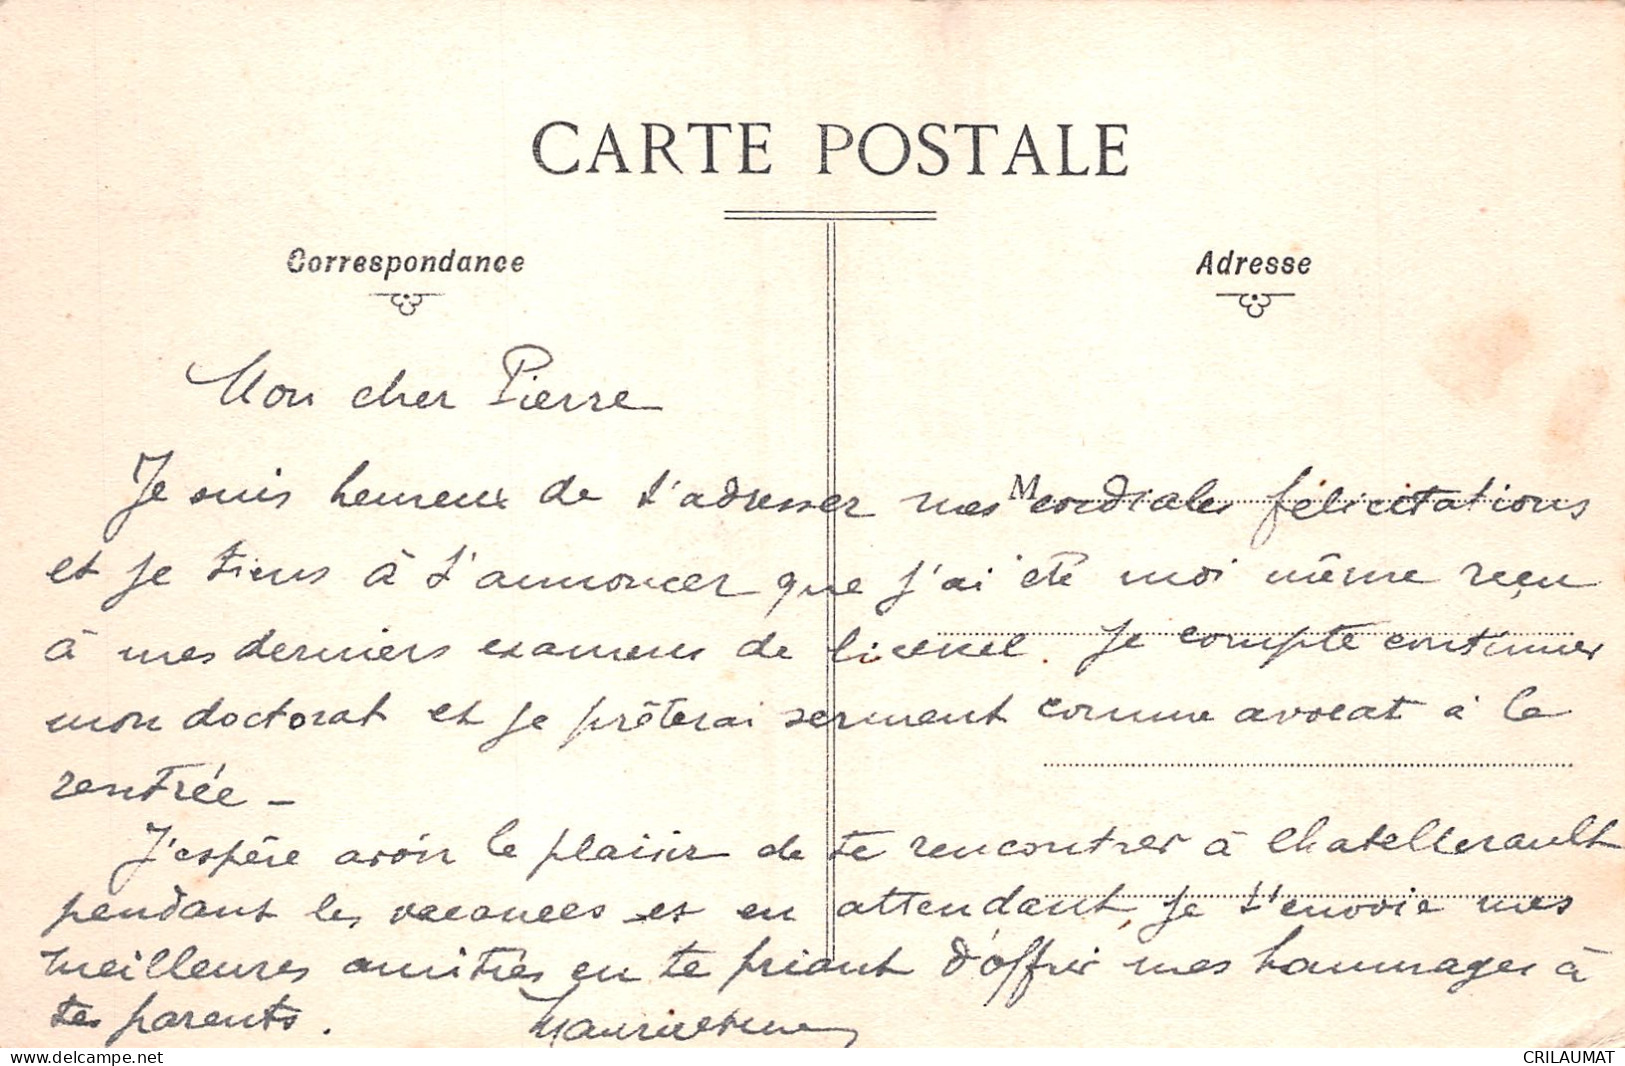 CARTE POSTALE
Correspondance
Adresse
Mon cher Pierre
Je suis heureux de t'adresser mes cordiales félicitations
M
et je tiens à t'annoncer que j'ai été moi même reçu
à mes derniers examens de licence. Je compte continuer
mon doctorat et je prêterai serment comme avocat à la
rentrée –
J'espère avoir le plaisir de te rencontrer à Chatellerault
pendant les vacances et en attendant, je t'envoie mes
meilleures amitiés en te priant d'offrir mes hommages à
tes parents.
delcampe.net
CRILAUMAT